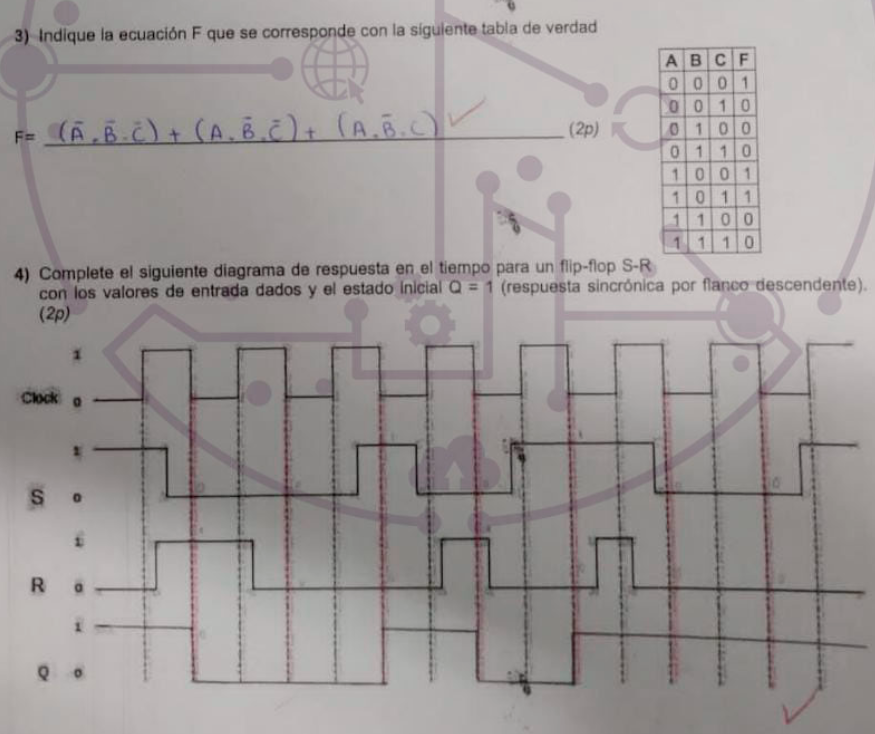 3) Indique la ecuación F que se corresponde con la siguiente tabla de verdad
F= (Ā . B̄ . C̄) + (A . B̄ . C̄) + (A . B̄ . C) (2p)
A B C F
0 0 0 1
0 0 1 0
0 1 0 0
0 1 1 0
1 0 0 1
1 0 1 1
1 1 0 0
1 1 1 0
4) Complete el siguiente diagrama de respuesta en el tiempo para un flip-flop S-R
con los valores de entrada dados y el estado inicial Q = 1 (respuesta sincrónica por flanco descendente).
(2p)
1
Clock 0
1
S 0
1
R 0
1
Q 0